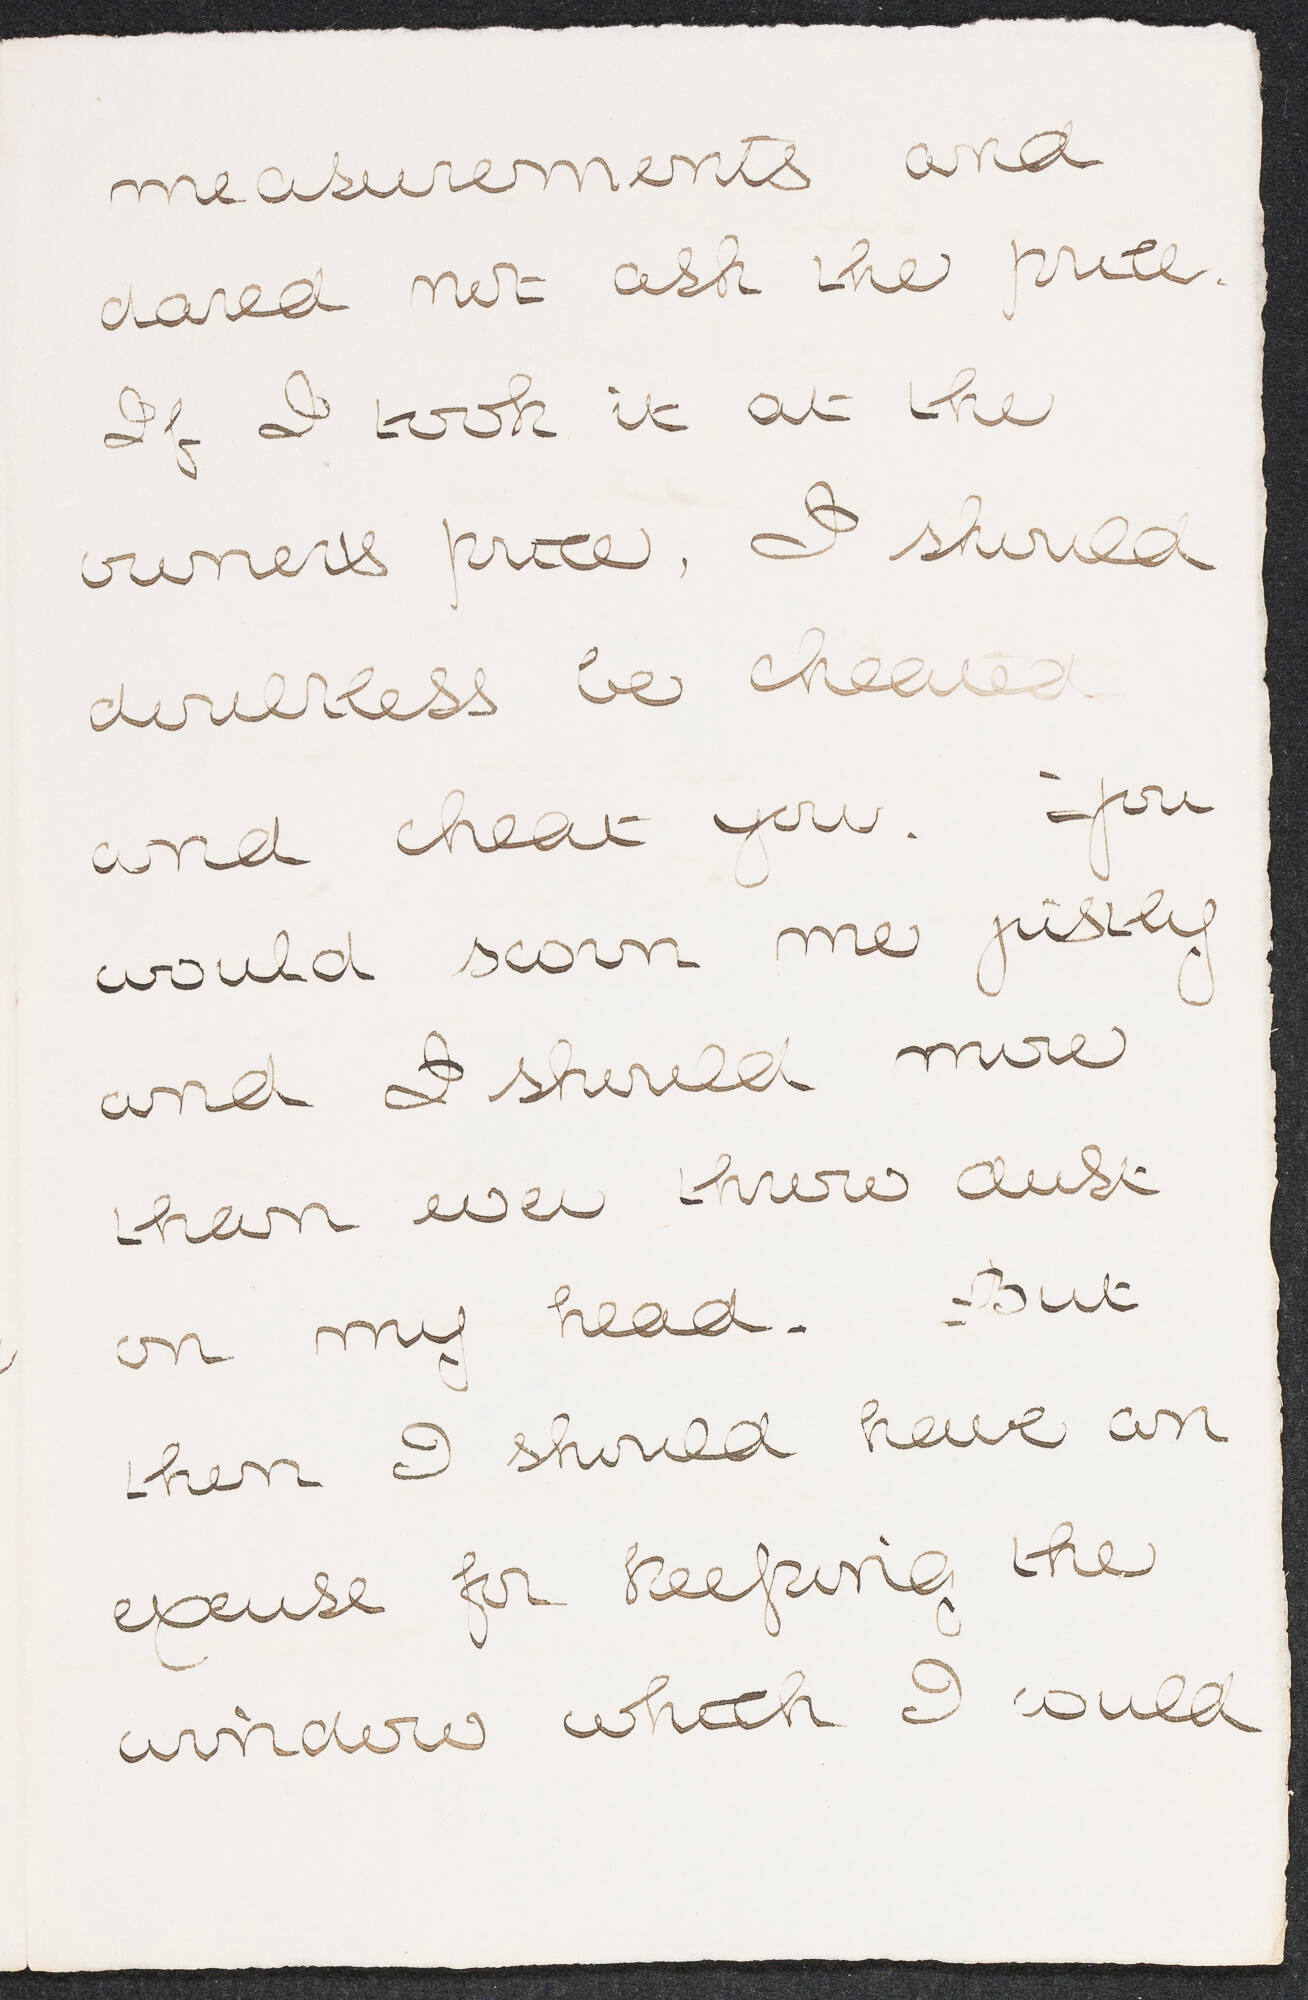 measurements and
dared not ask the price.
If I took it at the
owners price, I should
doubtless be cheated
and cheat you. You
would scorn me justly
and I should more
than ever throw dust
on my head. But
then I should have an
excuse for keeping the
window which I could